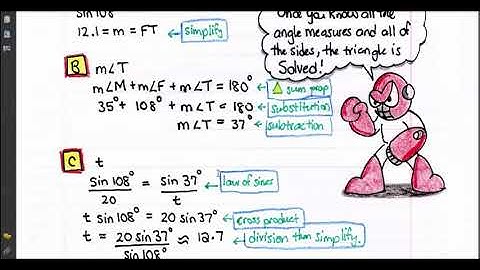 sin108
12.1 = m = FT ← simplify
Once you know all the
angle measures and all of
the sides, the triangle is
Solved!
B m∠T
m∠M + m∠F + m∠T = 180° ← △ sum prop
35° + 108° + m∠T = 180 ← substitution
m∠T = 37° ← subtraction
C t
sin 108° = sin 37° ← law of sines
20 t
t sin 108° = 20 sin 37° ← cross product
t = 20 sin 37° ≈ 12.7 ← division then simplify.
sin 108°